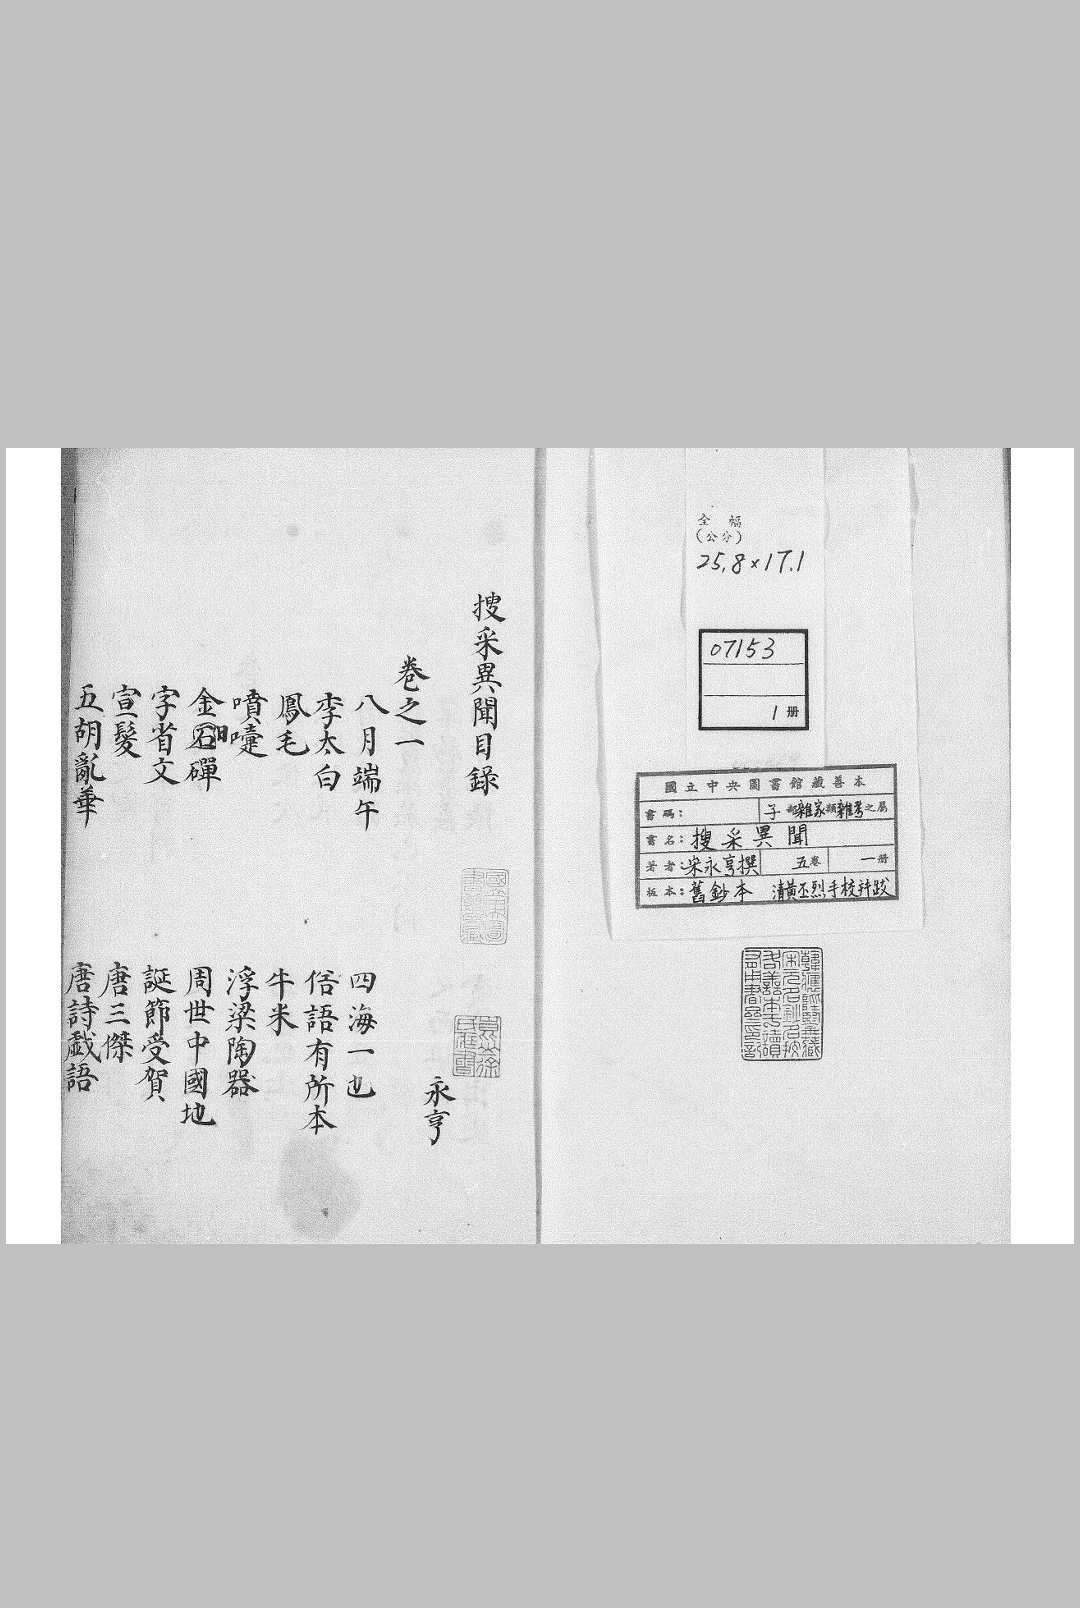 全 幅
(公分)
25.8×17.1
07153
1 册
國立中央圖書館藏善本
書碼: 子部雜家類雜考之屬
書名: 搜采異聞
著者: 宋永亨撰 五卷 一册
板本: 舊鈔本 清黃丕烈手校幷跋
搜采異聞目錄
永亨
卷之一
八月端午 四海一也
李太白 俗語有所本
鳳毛 牛米
噴嚏 浮梁陶器
金日磾 周世中國地
字省文 誕節受賀
宣髮 唐三傑
五胡亂華 唐詩戲語